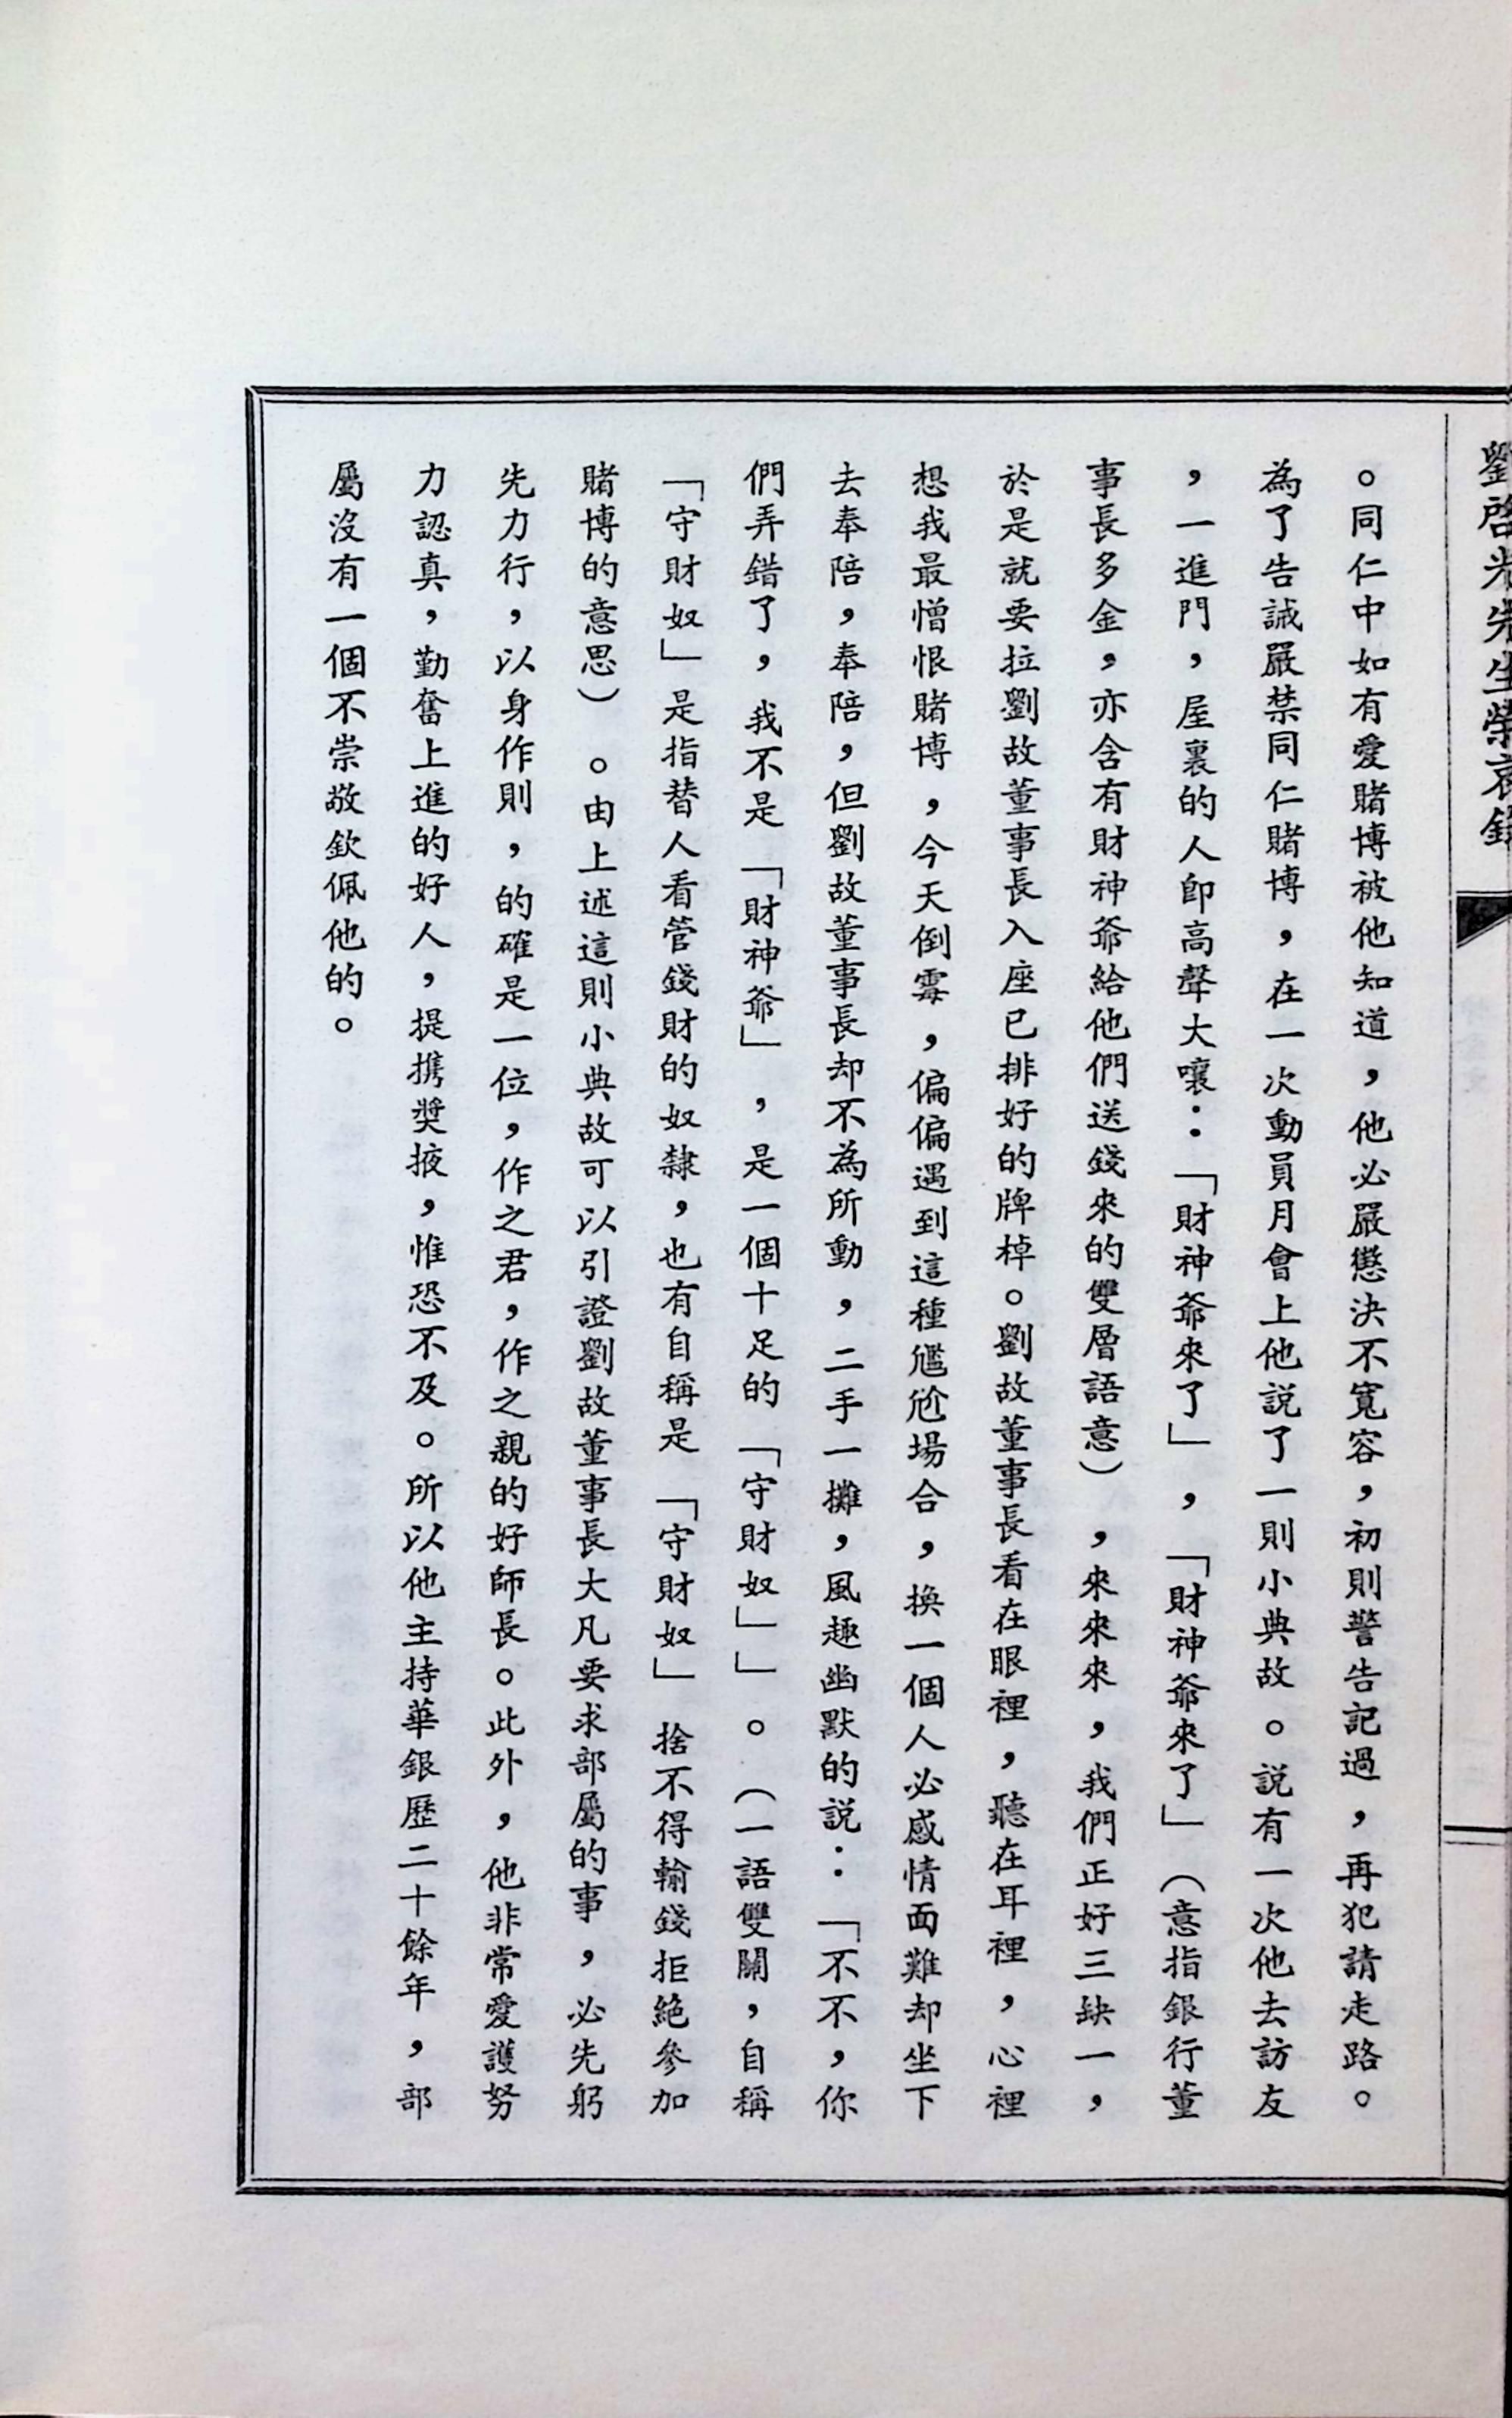 劉啓光先生榮哀錄
。同仁中如有愛賭博被他知道，他必嚴懲決不寬容，初則警告記過，再犯請走路。
為了告誡嚴禁同仁賭博，在一次動員月會上他説了一則小典故。説有一次他去訪友
，一進門，屋裏的人卽高聲大嚷：「財神爺來了」，「財神爺來了」（意指銀行董
事長多金，亦含有財神爺給他們送錢來的雙層語意），來來來，我們正好三缺一，
於是就要拉劉故董事長入座已排好的牌桿。劉故董事長看在眼裡，聽在耳裡，心裡
想我最憎恨賭博，今天倒霉，偏偏遇到這種尷尬場合，換一個人必感情面難却坐下
去奉陪，奉陪，但劉故董事長却不為所動，二手一攤，風趣幽默的説：「不不，你
們弄錯了，我不是「財神爺」，是一個十足的「守財奴」」。（一語雙關，自稱
「守財奴」是指替人看管錢財的奴隸，也有自稱是「守財奴」捨不得輸錢拒絕參加
賭博的意思）。由上述這則小典故可以引證劉故董事長大凡要求部屬的事，必先躬
先力行，以身作則，的確是一位，作之君，作之親的好師長。此外，他非常愛護努
力認真，勤奮上進的好人，提携獎掖，惟恐不及。所以他主持華銀歷二十餘年，部
屬沒有一個不崇敬欽佩他的。